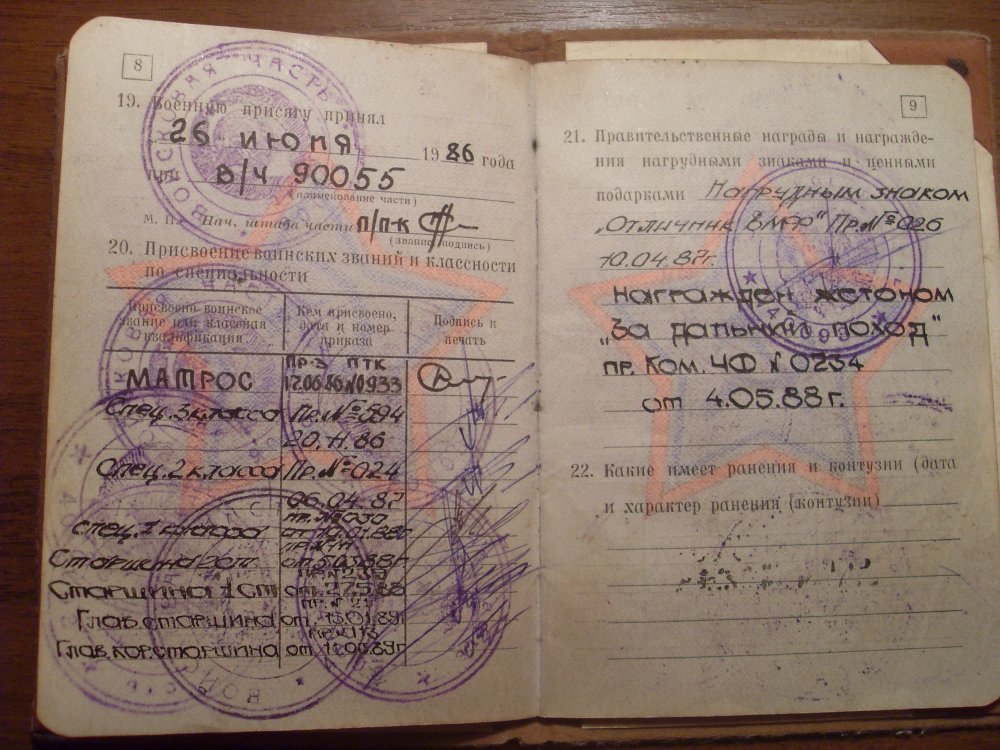 8
19. Военную присягу принял
26 июля 1986 года
при в/ч 90055
(наименование части)
М. П. Нач. штаба части п/п-к
(звание, подпись)
20. Присвоение воинских званий и классности
по специальности
Присвоено воинское
звание или классная
квалификация
Кем присвоено,
дата и номер
приказа
Подпись и
печать
МАТРОС
Пр-з ПТК
17.06.86 №0933
Спец. 3 класса Пр. № 594
20.11.86
Спец. 2 класса Пр. № 024
06.04.87г
Спец. 1 класса
Старшина 2 ст. от 5.03.88г
Старшина 1 ст от 27.5.88
Глав. старшина от 15.01.89г
Глав. кор. старшина от
9
21. Правительственные награды и награжде-
ния нагрудными знаками и ценными
подарками Нагрудным знаком
„Отличник ВМФ" Пр. № 026
10.04.87г.
Награжден жетоном
„За дальний поход"
пр. Ком. ЧФ N 0234
от 4.05.88г.
22. Какие имеет ранения и контузии (дата
и характер ранения (контузии)